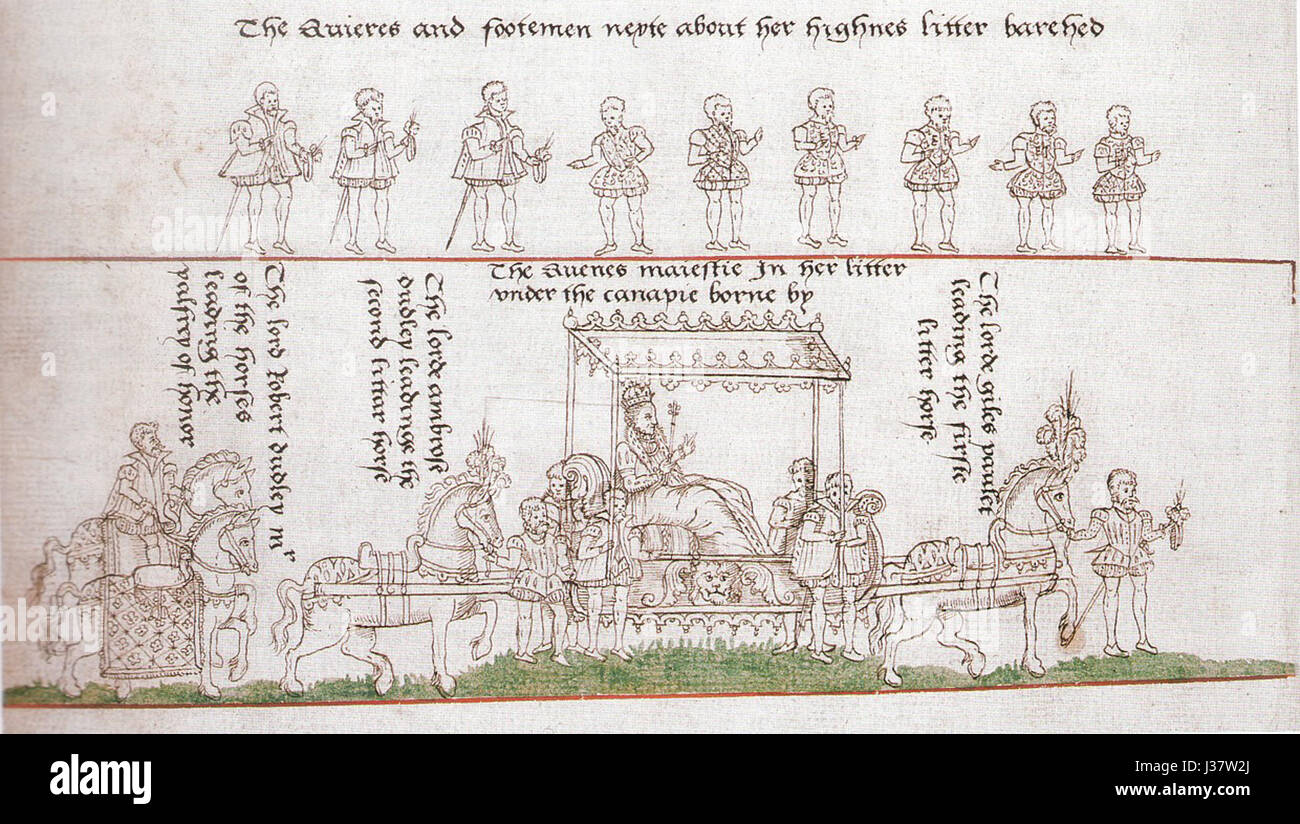 The Quieres and footemen nexte about her highnes litter barehed
The lord Robert dudley mr
of the horses
leading the
palfrey of honor
The lorde ambrose
dudley leadinge the
second litter horse
The Quenes maiestie In her litter
vnder the canapie borne by
The lorde giles paulet
leading the firste
litter horse
a
alamy stock photo
alamy
J37W2J
www.alamy.com